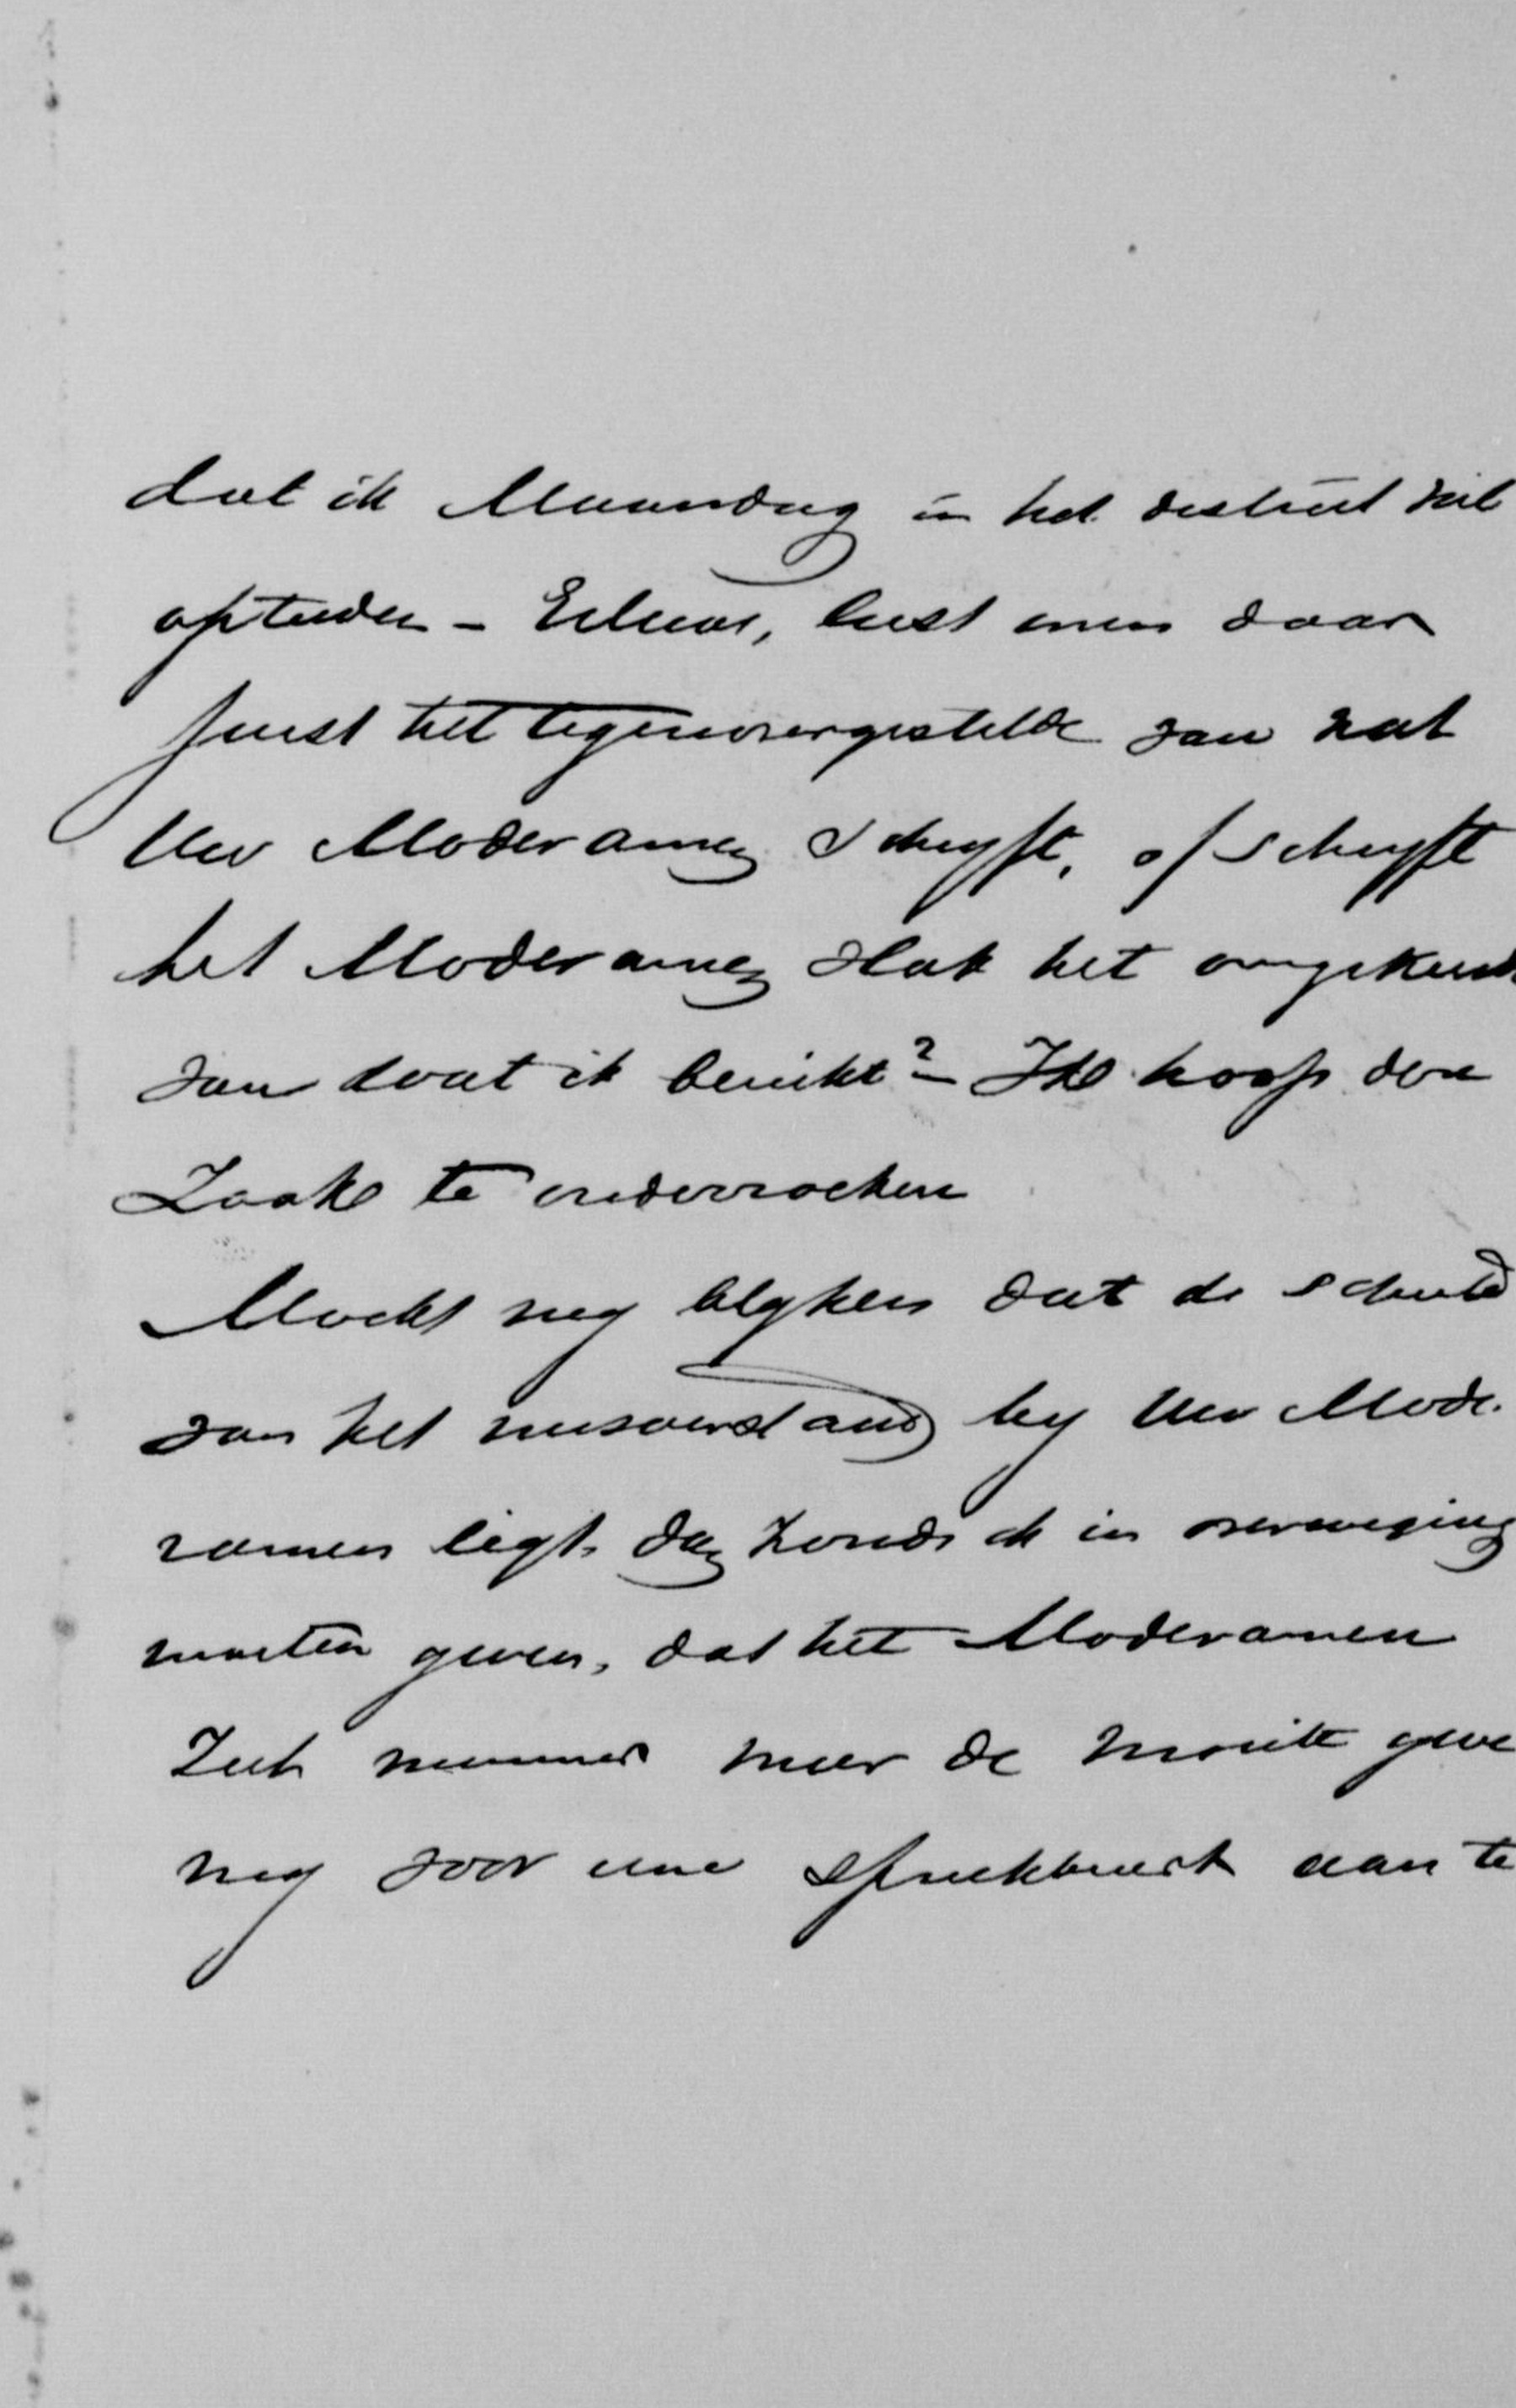 dat ik Maandag in het district zal
optreden – Eilieve, leest men daar
juist het tegenovergestelde van wat
Uw Moderamen schryft, of schryft
het Moderamen vlak het omgekeerde
van wat ik bericht? – Ik hoop deze
Zaak te onderzoeken
Mocht my blyken dat de schuld
van het misverstand by Uw Mode-
ramen ligt, dan zoude ik in overweging
moeten geven, dat het Moderamen
Zich nimmer meer de moeite geve
my voor eene spreekbeurt aan te